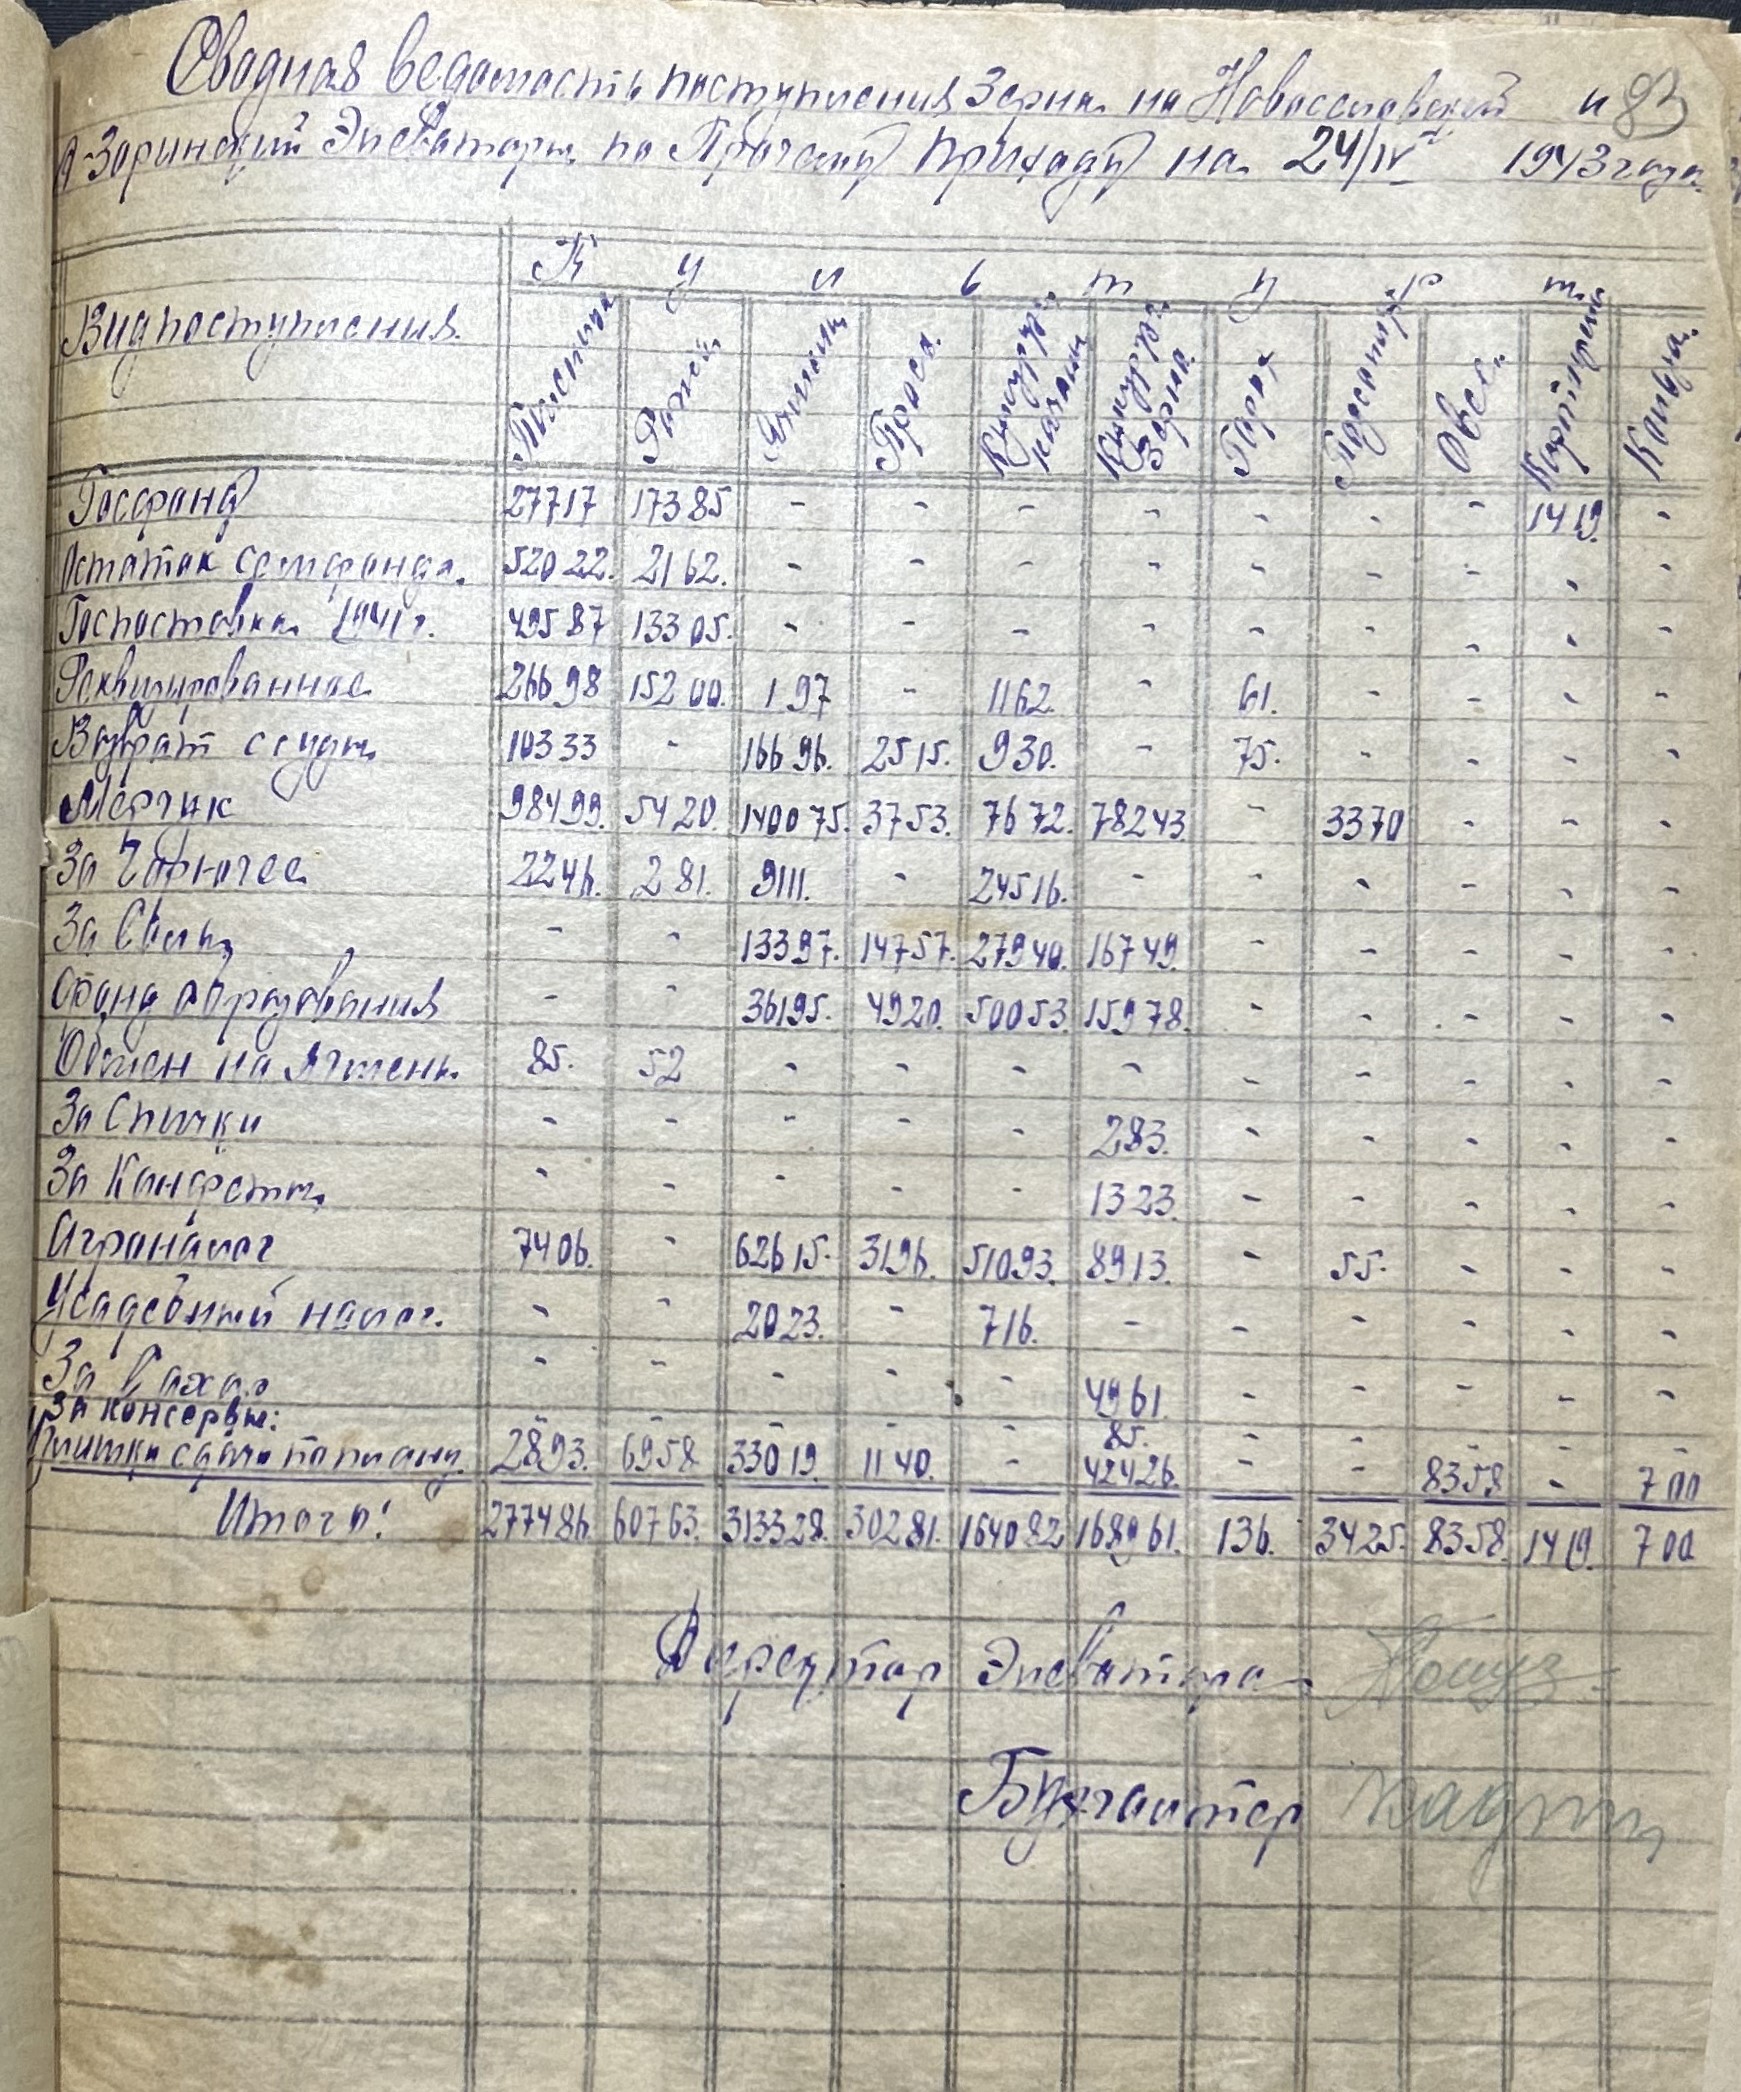 Сводная ведомость поступления Зерна на Новоселовский и 83
Зоринский Элеватары по Прочему Приходу на 24/IV 1943 года.
К у л ь т у р т
Вид поступления. Пшеница Рожь Ячмень Просо. Кукуруз. качаны Кукуруз. Зерно. Горох Подсолнух Овес. Картофель Кольза.
Госфонд 27717 17385 - - - - - - - 1419. -
Остаток семфонда. 52022. 2162. - - - - - - - - -
Госпоставка 1941 г. 49587 13305. - - - - - - - - -
Реквизированное 26698 15200. 197 - 1162. - 61. - - - -
Возврат ссуды 10333 - 16696. 2515. 930. - 75. - - - -
Мерчик 98499. 5420. 140075. 3753. 7672. 78243. - 3370 - - -
За Горючее 2246. 281. 9111. - 24516. - - - - - -
За Соль - - 13397. 14757. 27940. 16749. - - - - -
Фонд образования - - 36195. 4920. 50053. 15978. - - - - -
Обмен на Ячмень. 85. 52 - - - - - - - - -
За Спички - - - - - 283. - - - - -
За Конфеты - - - - - 1323. - - - - -
Агроналог 7406. - 62615. 3196. 51093. 8913. - 55. - - -
Усадебный налог. - - 2023. - 716. - - - - - -
За Сахар - - - - - 4961. - - - - -
За консервы: - - - - - 85. - - - - -
сдачи по плану. 2893. 6958 33019. 1140. - 42426. - - 8358 - 700
Итого: 277486. 60763. 313328. 30281. 164082 168961. 136. 3425. 8358. 1419. 700
Директор Элеватора
Бухгалтер